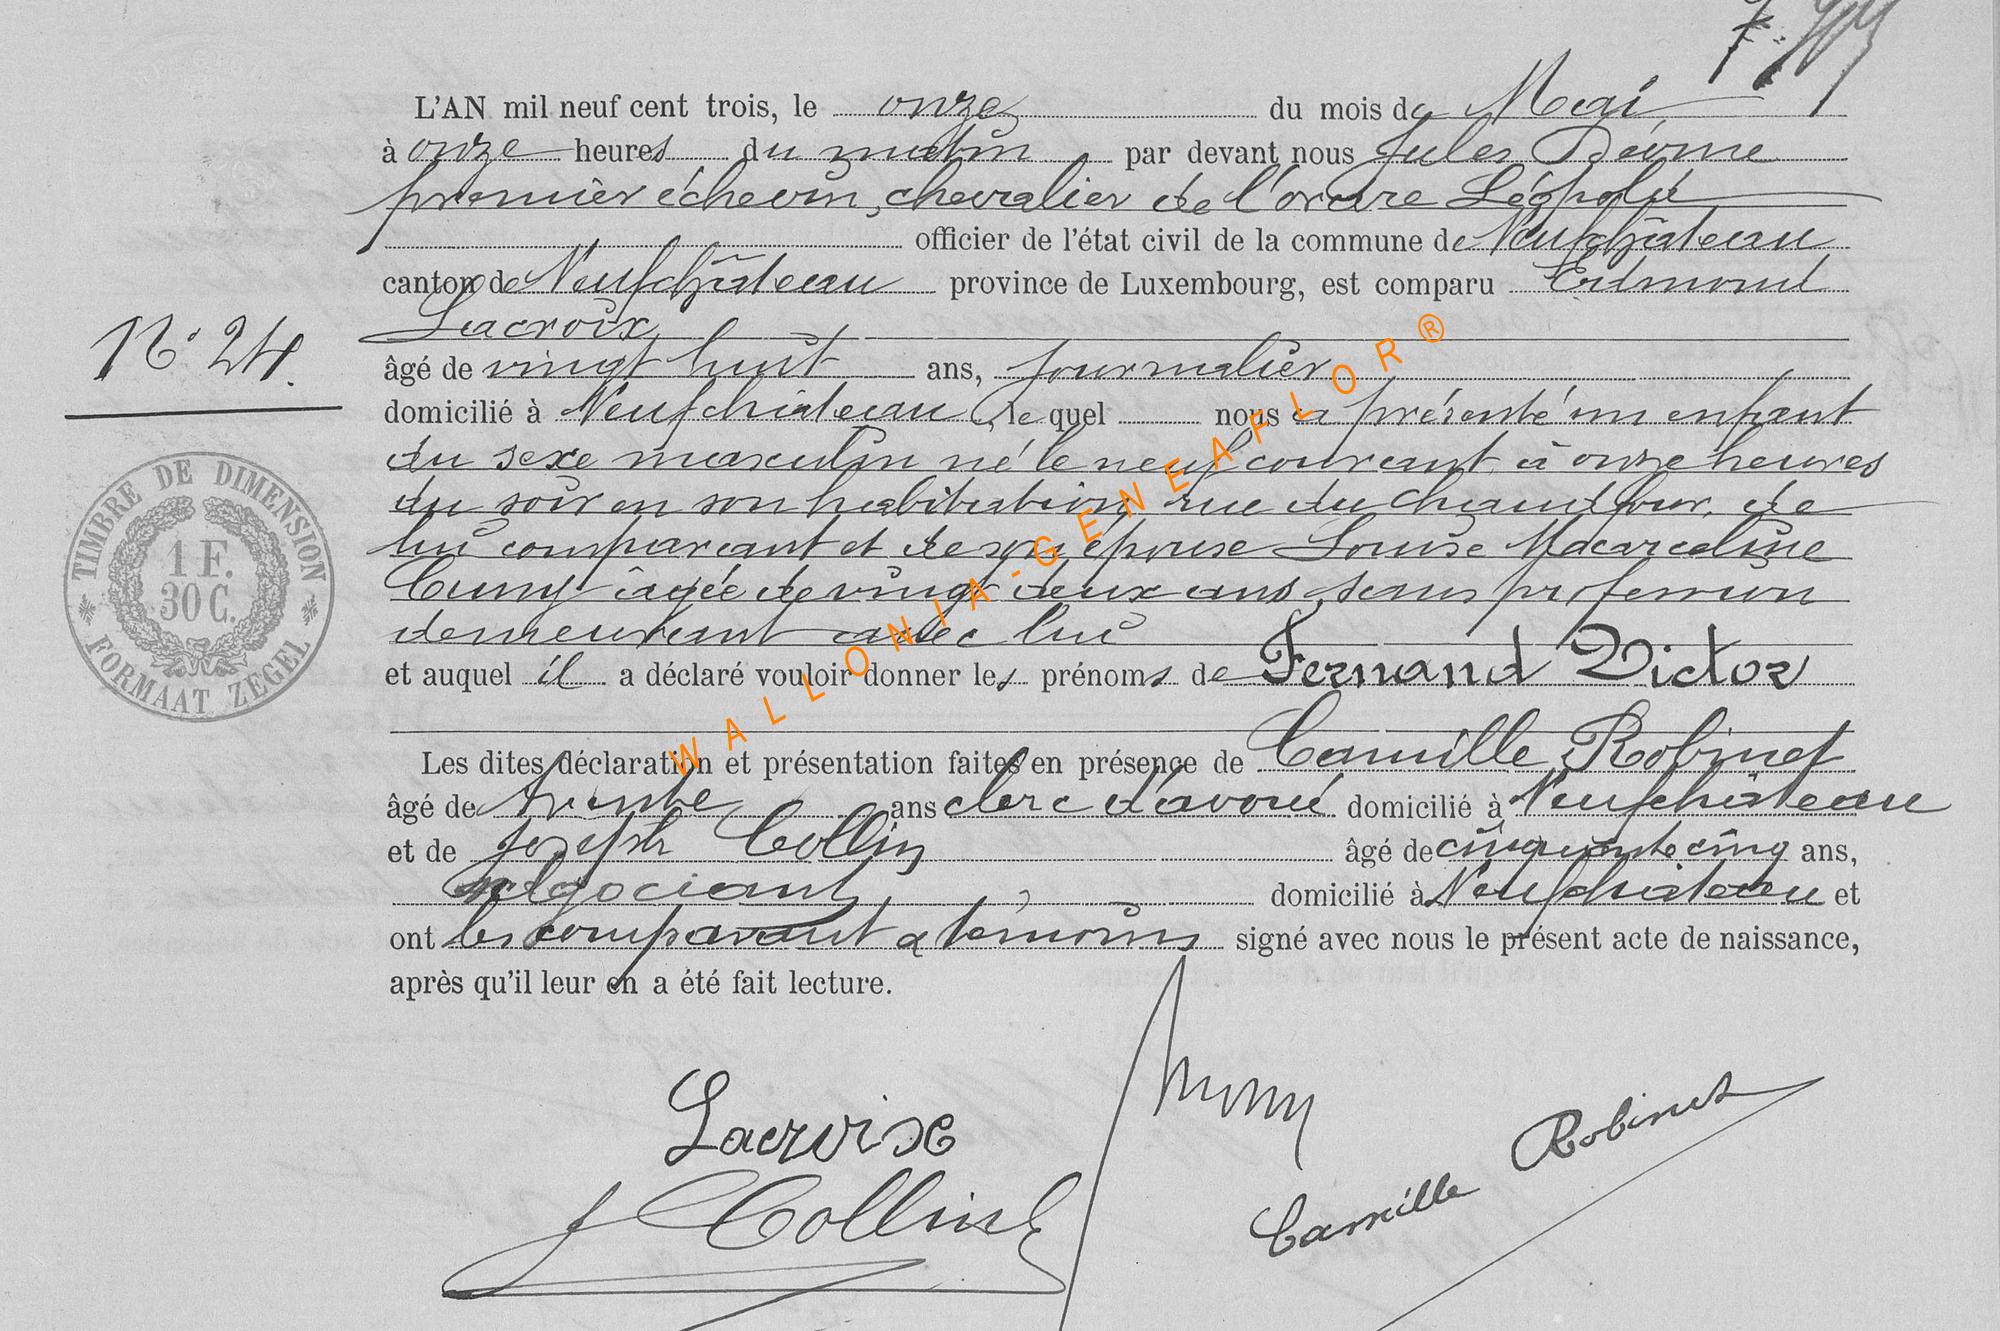 L'AN mil neuf cent trois, le onze du mois de Mai
à onze heures du matin par devant nous Jules
premier échevin, chevalier de l'ordre Léopold
officier de l'état civil de la commune de Neufchâteau
canton de Neufchâteau province de Luxembourg, est comparu Edmond
Lacroix
N° 24.
âgé de vingt huit ans, journalier
domicilié à Neufchâteau, le quel nous a présenté un enfant
du sexe masculin né le neuf courant à onze heures
du soir en son habitation rue du Chaudfour, de
lui comparant et de son épouse Louise Marceline
Cuny âgée de vingt deux ans, sans profession
demeurant avec lui
et auquel il a déclaré vouloir donner les prénoms de Fernand Victor
Les dites déclaration et présentation faites en présence de Camille Robinet
âgé de trente ans clerc d'avoué domicilié à Neufchâteau
et de Joseph Collin âgé de cinquante cinq ans,
négociant, domicilié à Neufchâteau et
ont les comparant & témoins signé avec nous le présent acte de naissance,
après qu'il leur en a été fait lecture.
TIMBRE DE DIMENSION
1 F.
30 C.
FORMAAT ZEGEL
WALLONIA-GENEAFLOR®
Lacroix
J Collin
Camille Robinet